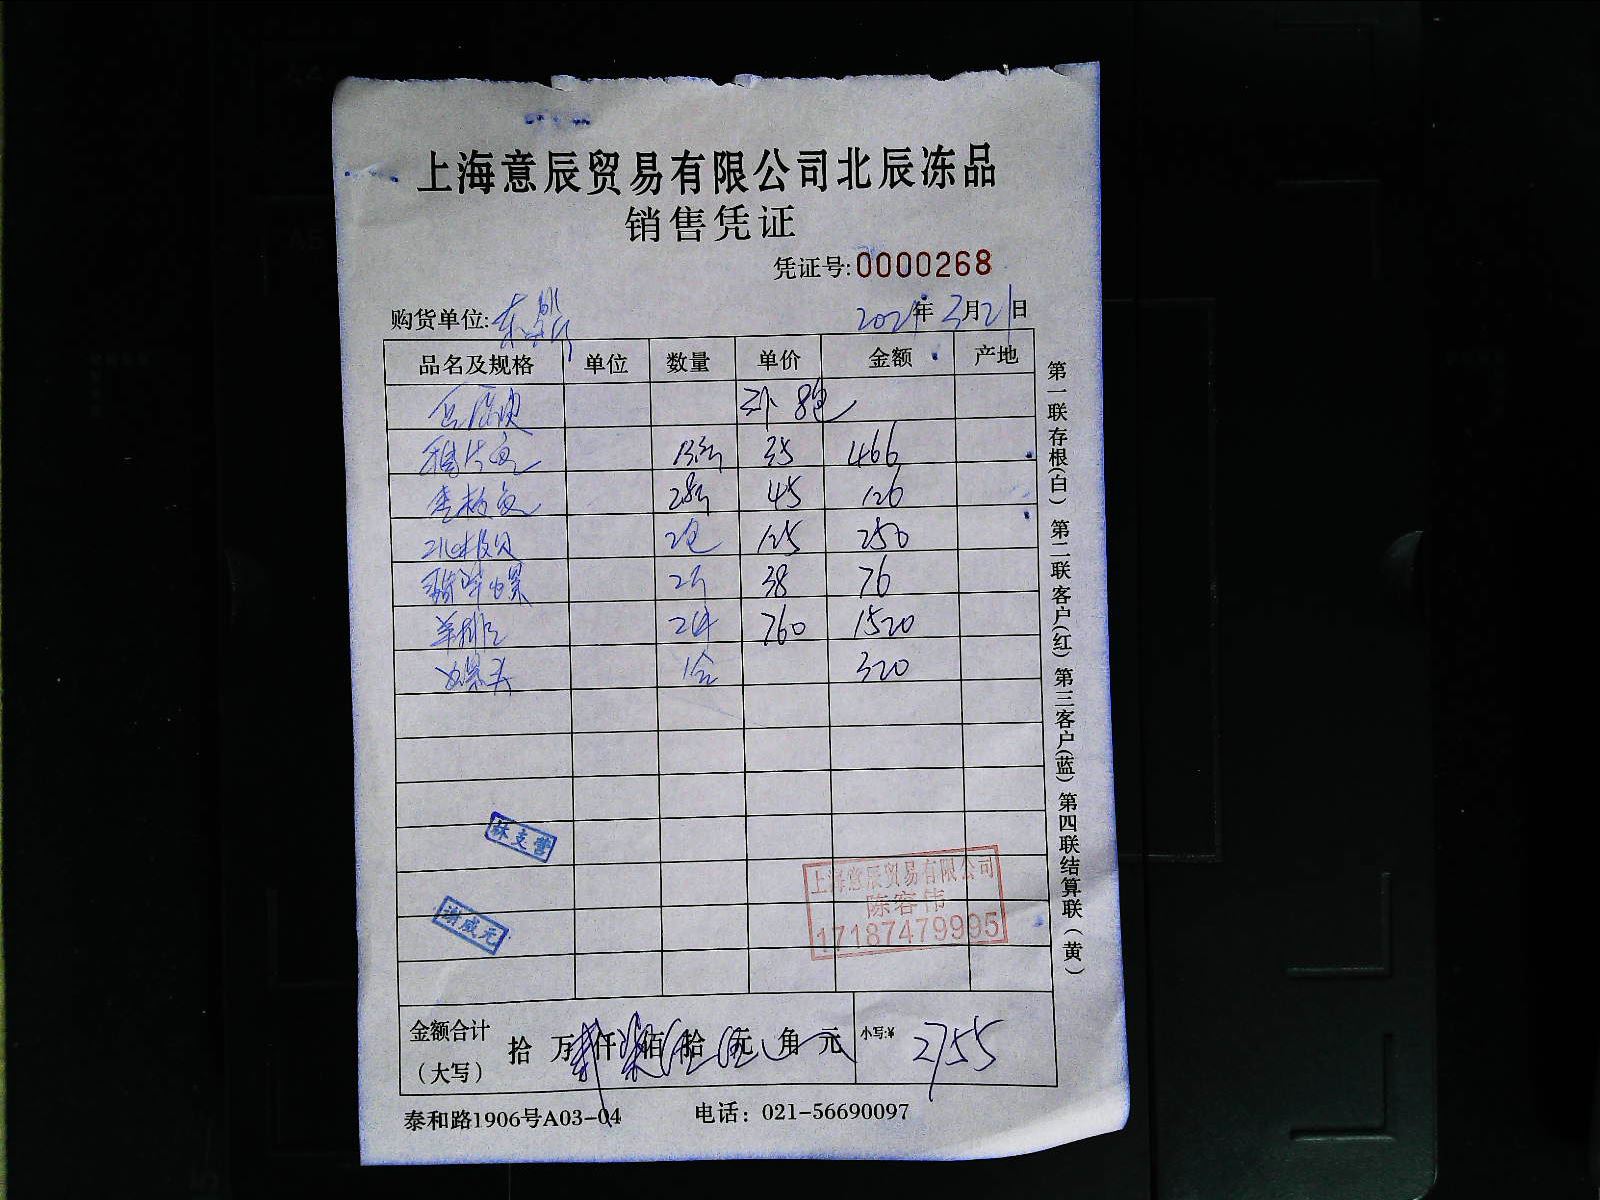 上海意辰贸易有限公司北辰冻品
销售凭证
凭证号:0000268
购货单位:
2021年3月21日
品名及规格 单位 数量 单价 金额 产地
补 8包
35 466
鱼 28斤 45 126
2包 125 250
螺 2斤 38 76
羊排 2件 760 1520
头 1盒 320
林支营
谢成元
上海意辰贸易有限公司
陈容伟
17187479995
金额合计
(大写)
拾 万 仟 佰 拾 元 角 元
小写:¥ 2755
泰和路1906号A03-04 电话: 021-56690097
第一联存根(白) 第二联客户(红) 第三客户(蓝) 第四联结算联(黄)